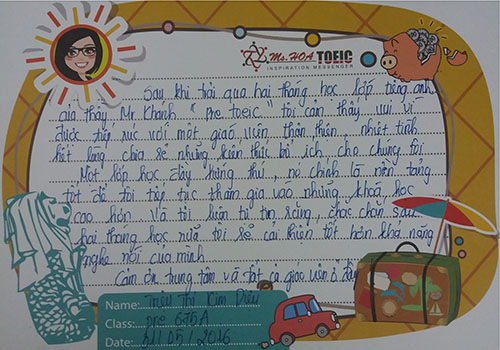 Ms. HOA TOEIC
INSPIRATION MESSENGER
Sau khi trải qua hai tháng học lớp tiếng anh
của thầy Mr. Khánh "Pre toeic" tôi cảm thấy vui vì
được tiếp xúc với một giáo viên thân thiện, nhiệt tình
hết lòng chia sẻ những kiến thức bổ ích cho chúng tôi
Một lớp học đầy hứng thú, nó chính là nền tảng
tốt để tôi tiếp tục tham gia vào những khoá học
cao hơn và tôi luôn tự tin rằng, chắc chắn sau
hai tháng học nữa tôi sẽ cải thiện tốt hơn khả năng
nghe nói của mình
Cảm ơn trung tâm và tất cả giáo viên ở đây
Name: Thị Kim Diệu
Class: pre 675A
Date: 05/2016